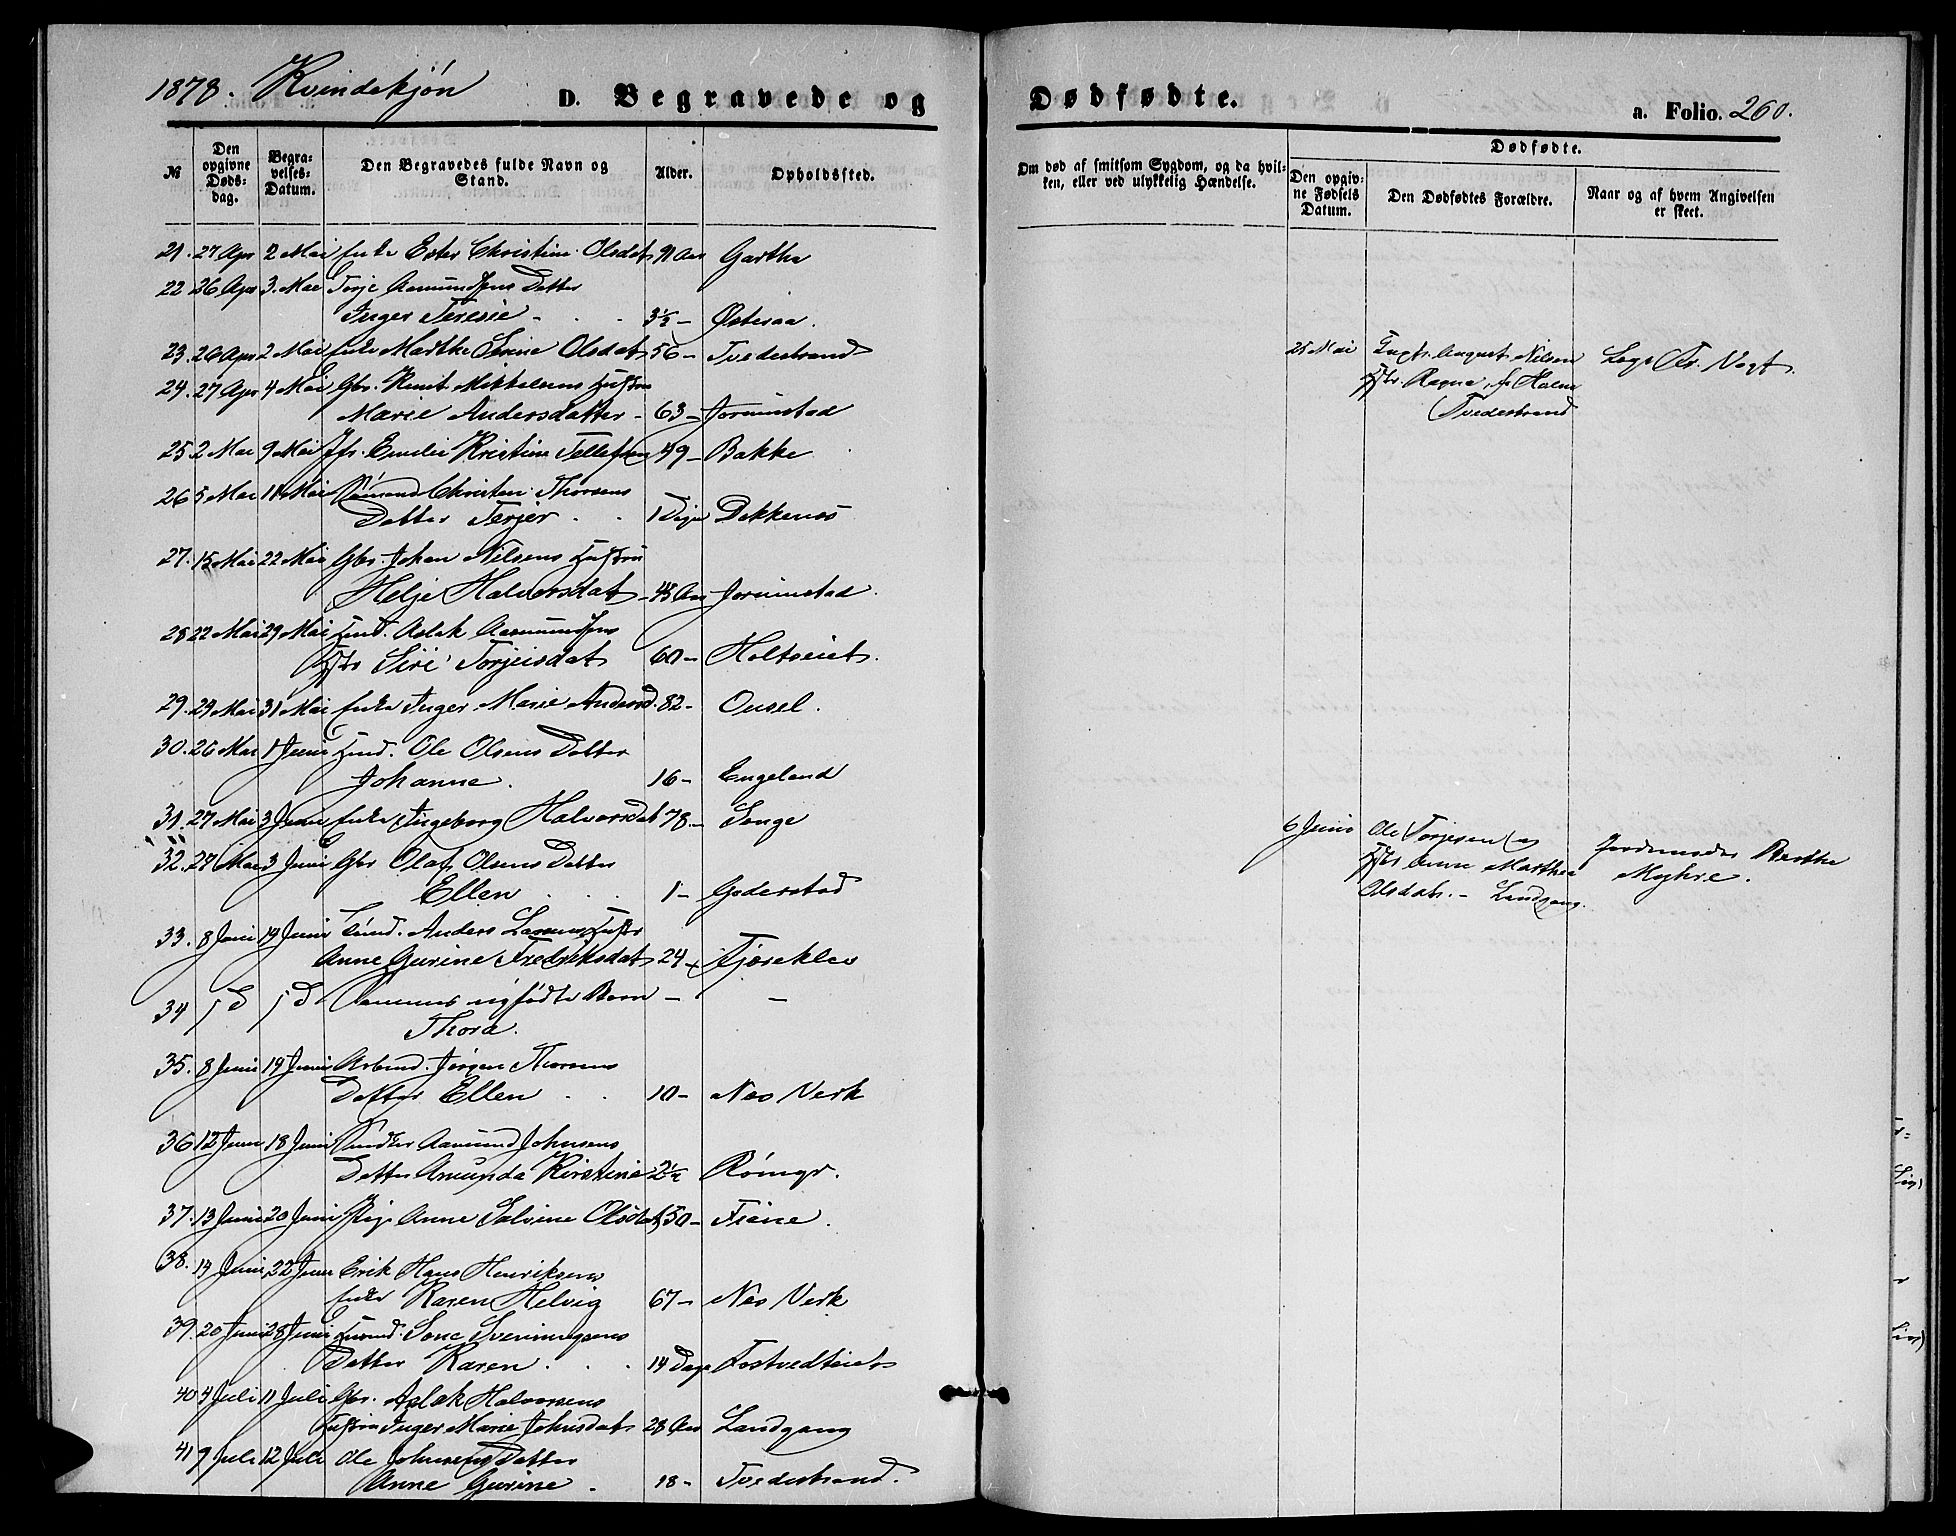 1878. Kvindekjøn D. Begravede og Dødfødte. a. Folio. 260.
№ Den opgivne Døds-dag. Begra-velses-Datum. Den Begravedes fulde Navn og Stand. Alder. Opholdssted. Om død af smitsom Sygdom, og da hvil-ken, eller ved ulykkelig Hændelse. Dødfødte. Den opgiv-ne Fødsels Datum. Den Dødfødtes Forældre. Naar og af hvem Angivelsen er skeet.
21. 27 Apr 2 Mai Enke Ester Christine Olsdat 91 Aar Gartha
22 26 Apr 3. Mai Torje Aamundsens Datter
Inger Teresie - 3½ - Østeraa.
23. 26 Apr 2 Mai Enke Marthe Serine Olsdat 56 - Tvedestrand
24. 27 Apr 4 Mai Gbr. Knut Mikkelsens Hustru
Marie Andersdatter - 63 - Jorunstad
25 2 Mai 9 Mai Jfr. Emilie Kristine Tellefsen 49 - Bakke
26 5 Mai 11 Mai Sømand Christen Thorsens
Datter Terjer . . 1 Dage Dekkenes
27. 15 Mai 22 Mai Gbr. Johan Nilsens Hustru
Helje Halvorsdat - 43 Aar Jorunstad.
28 22 Mai 29 Mai Husd. Aslak Aamundsens
Hstr Siri Torjeisdat 60 - Holtseiet.
29. 24 Mai 31 Mai Enke Inger Marie Andersd. 82 - Ousel.
30. 26 Mai 1 Juni Husd. Ole Olsens Datter
Johanne. 16 - Engeland
31. 27 Mai 3 Juni Enke Ingeborg Halvorsdat 78 - Songe
32. 27 Mai 3 Juni Gbr Olaf Olsens Datter
Ellen . . . 1 - Goderstad
33. 8 Juni 19 Juni Tømd. Anders Larsens Hustr
Anne Gurine Fredriksdat 24 - Fjæreklev
34 jD jD Sammes nyfødte Barn - -
Thora.
35. 8 Juni 19 Juni Arbmd. Jørgen Thorsens
Datter Ellen . . 10 - Nes Verk
36 12 Juni 18 Juni Aamund Johnsens
Datter Amunda Kirstine 2½ Rømyr.
37. 13 Juni 20 Juni Pige Anne Salvine Olsdat 50 - Fiane.
38. 14 Juni 22 Juni Erik Hans Henriksens
Enke Karen Helvig 67 - Nes Verk
39. 20 Juni 28 Juni Husmd. Sone Sveinungsens
Datter Karen . . . 14 Dage Fostvedteiet
40 4 Juli 11 Juli Gbr. Aslak Halvorsens
Hustru Inger Marie Johnsdat 28 Aar Landgang
41 9 Juli 12 Juli Ole Johnsens Datter
Anne Gurine - 18 - Tvedestrand.
25 Mai August Nilsen Læge Fr. Vogt.
Hstr. Ragna, f. Holm
Tvedestrand
6 Juni Ole Torjesen og Jordemoder Berthe
Hstr Anne Marthea Myhre.
Olsdatr. - Landgang.